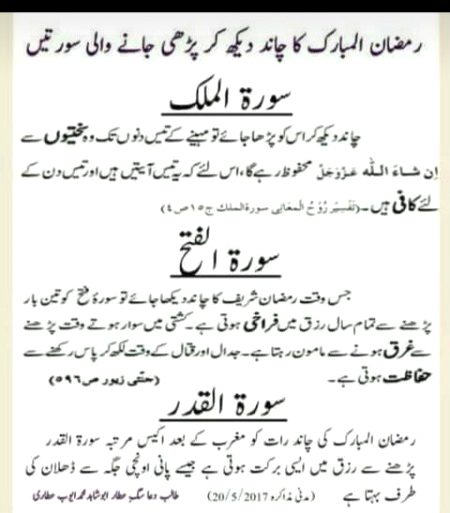 رمضان المبارک کا چاند دیکھ کر پڑھی جانے والی سورتیں
سورۃ الملک
چاند دیکھ کر اس کو پڑھا جائے تو مہینے کے تیس دنوں تک وہ سختیوں سے
اِن شاءَ اللہ عَزَّوَجَلَّ محفوظ رہے گا، اس لئے کہ یہ تیس آیتیں ہیں اور تیس دن کے
لئے کافی ہیں۔ (تفسیر رُوحُ المعانی سورۃ الملک ج۱۵ ص۴)
سورۃ الفتح
جس وقت رمضان شریف کا چاند دیکھا جائے تو سورۂ فتح کو تین بار
پڑھنے سے تمام سال رزق میں فراخی ہوتی ہے۔ کشتی میں سوار ہوتے وقت پڑھنے
سے غرق ہونے سے مامون رہتا ہے۔ جدال اور قتال کے وقت لکھ کر پاس رکھنے سے
حفاظت ہوتی ہے۔ (جنتی زیور ص۵۹۶)
سورۃ القدر
رمضان المبارک کی چاند رات کو مغرب کے بعد اکیس مرتبہ سورۃ القدر
پڑھنے سے رزق میں ایسی برکت ہوتی ہے جیسے پانی اونچی جگہ سے ڈھلان کی
طرف بہتا ہے (مدنی مذاکرہ 20/5/2017) طالب دعا سگِ عطار ابو شاہد محمد ایوب عطاری